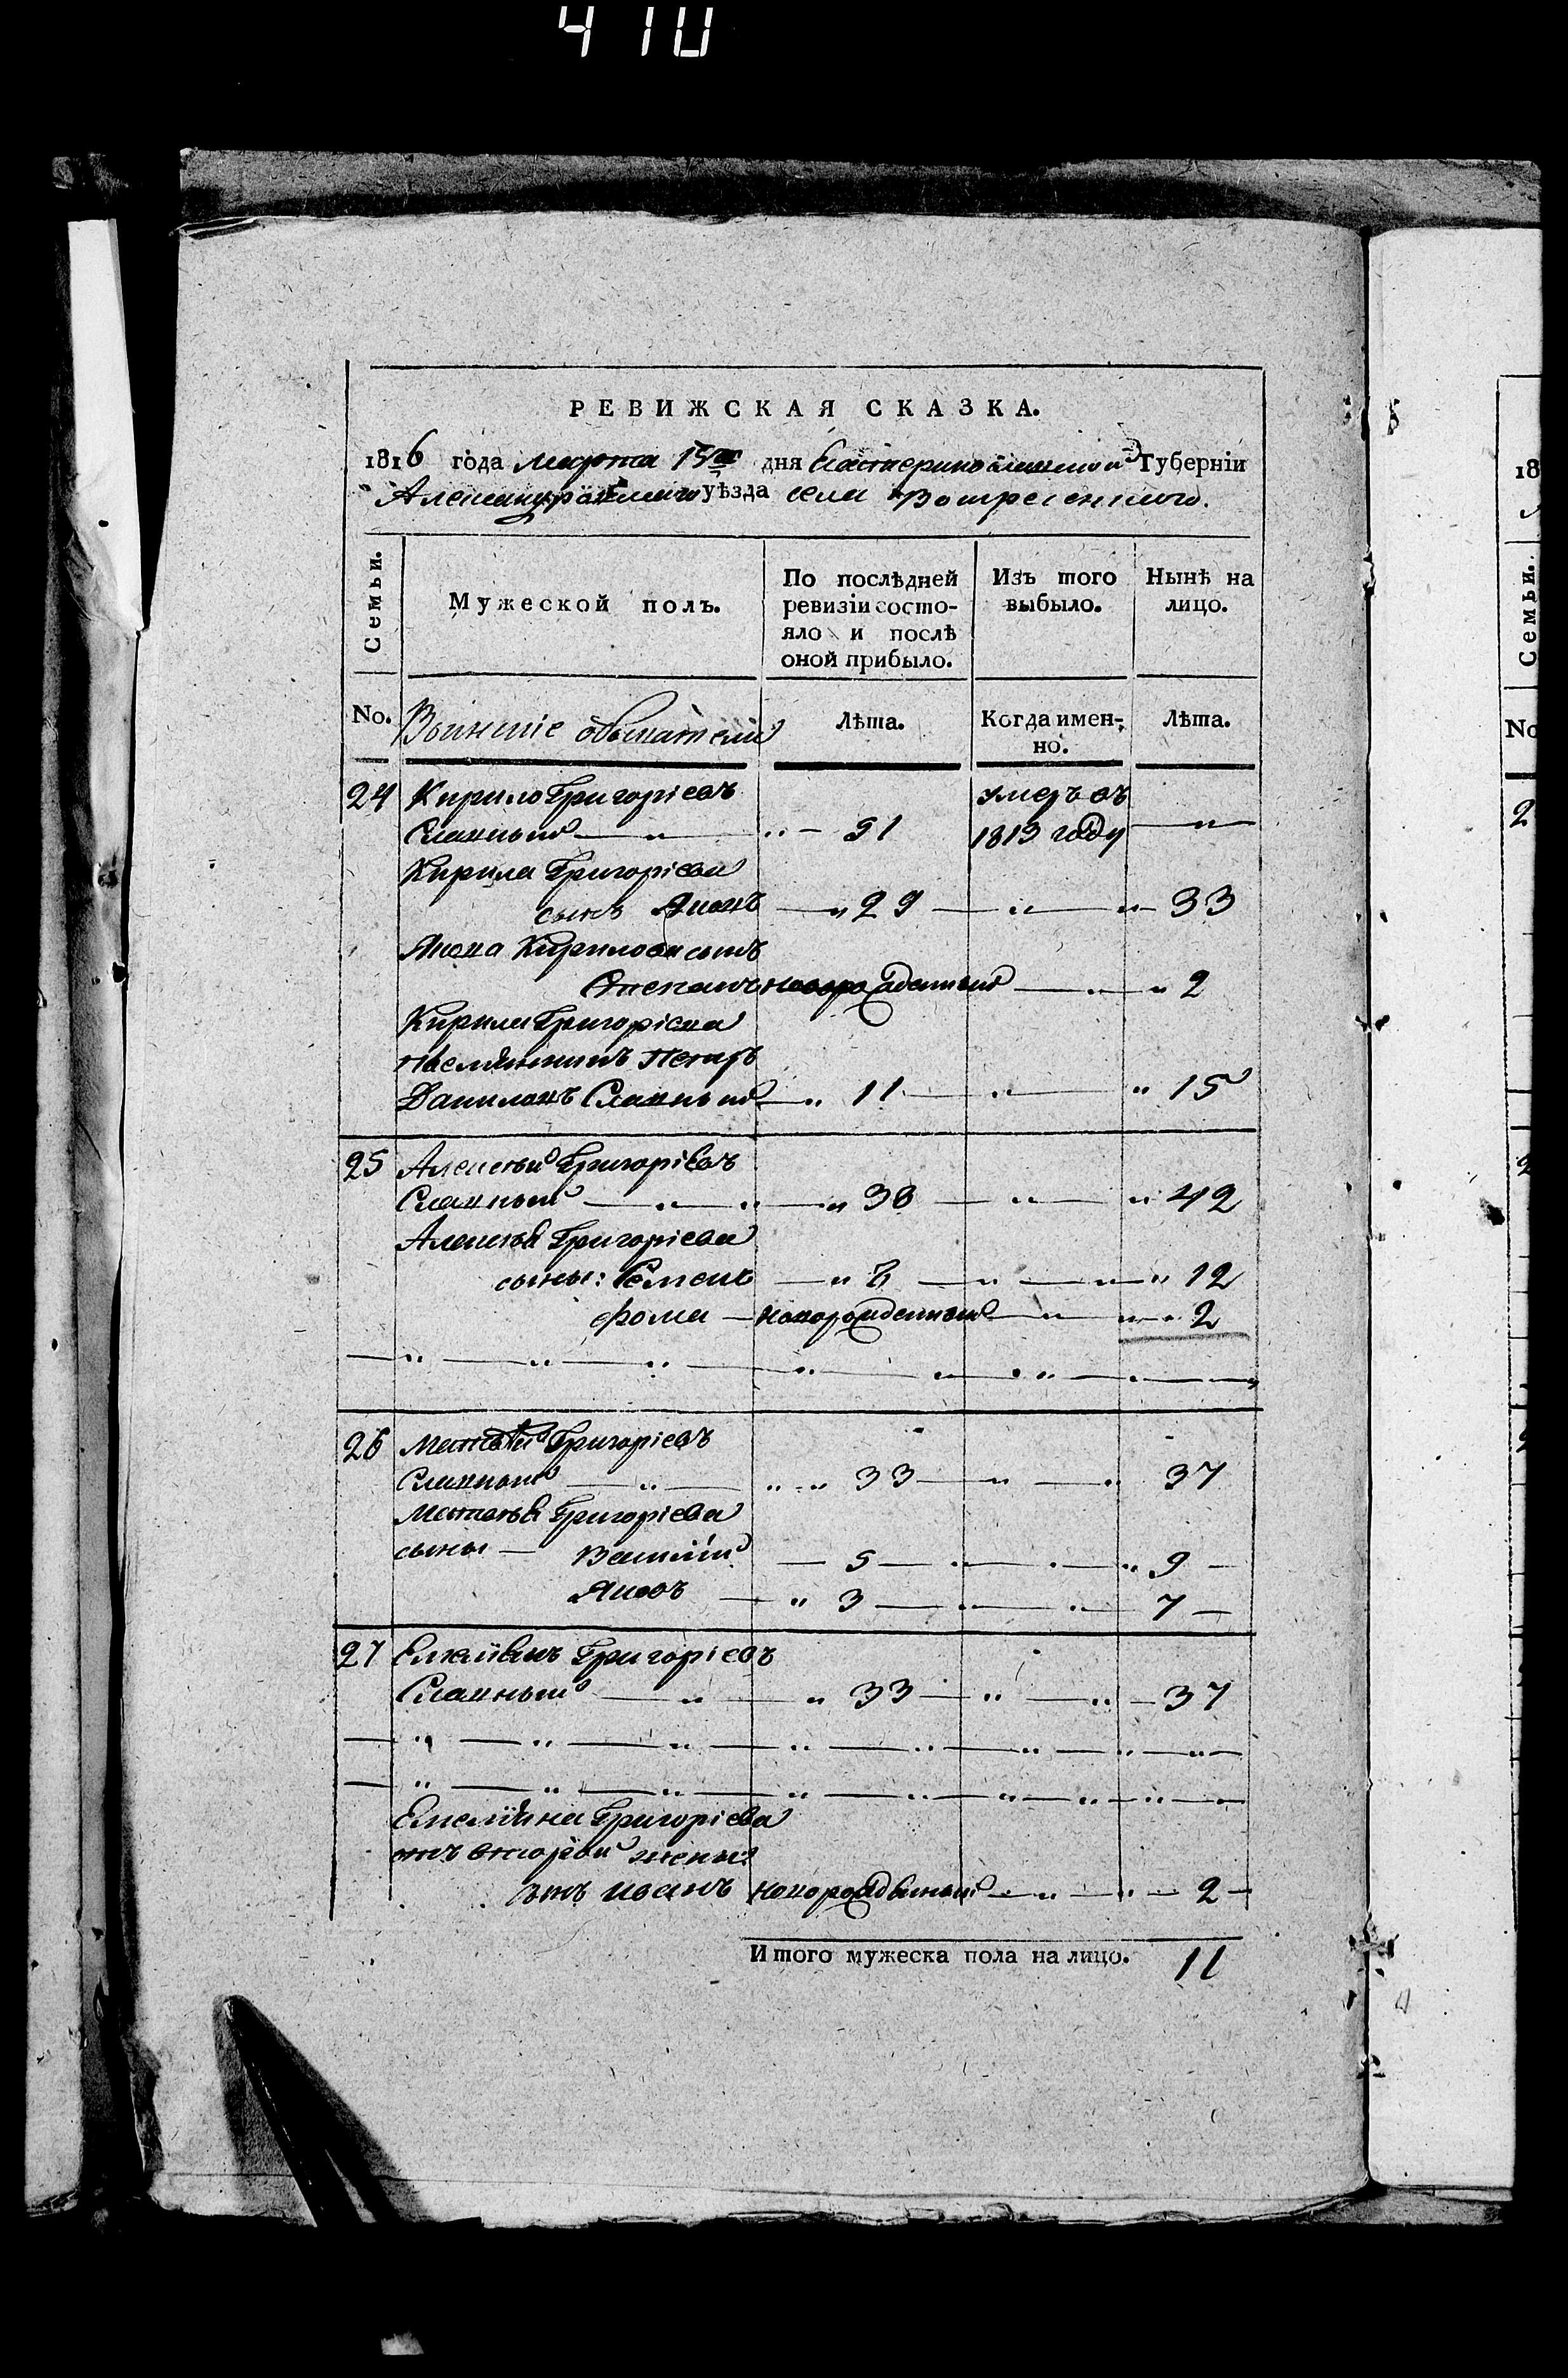 410
РЕВИЖСКАЯ СКАЗКА.
1816 года марта 15го дня Екатеринославской Губерніи
Александровского уѣзда села Воскресенского.
Семьи.
Мужеской полъ.
По послѣдней ревизіи состо-
яло и послѣ
оной прибыло.
Изъ того
выбыло.
Нынѣ на
лицо.
No.
Воинскіе обыватели
Лѣта.
Когда имен-
но.
Лѣта.
24 Кирило Григоріевъ умеръ въ
Славный — 51 1813 году —
Кирила Григоріева
сынъ Яковъ — 29 — 33
Якова Кирилова сынъ
Степанъ новорожденный — 2
Кирила Григоріева
племянникъ Петръ
Даниловъ Славный — 11 — 15
25 Алексѣй Григоріевъ
Славный — 38 — 42
Алексѣя Григоріева
сыны: Семенъ — 8 — 12
Фома — новорожденный — 2
26 Матвѣй Григоріевъ
Славный — 33 — 37
Матвѣя Григоріева
сыны — Василій — 5 — 9 —
Яковъ — 3 — 7 —
27 Емельянъ Григоріевъ
Славный — 33 — 37
Емельяна Григоріева
отъ второй жены
Иванъ новорожденный — 2 —
Итого мужеска пола на лицо. 11
18
Семьи.
No
2